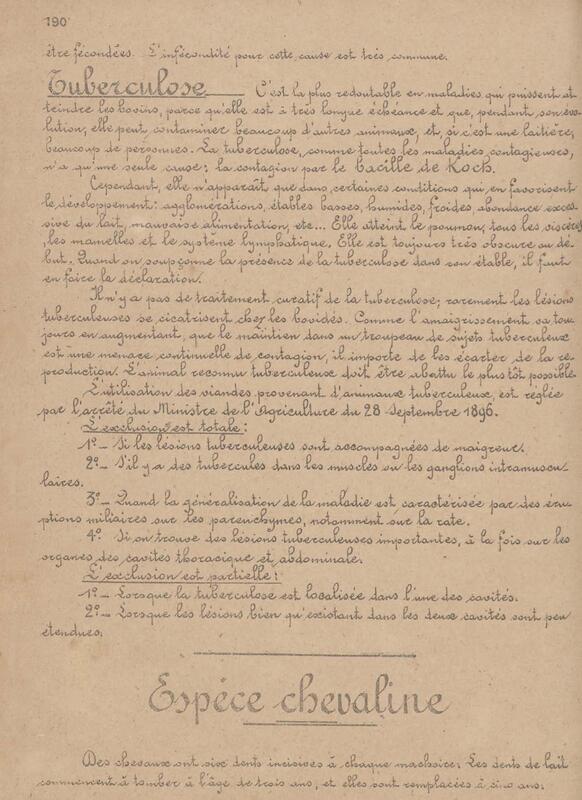 190
être fécondées. L'infécondité pour cette cause est très commune.
Tuberculose C'est la plus redoutable en maladies qui puissent at
teindre les bovins, parce qu'elle est à très longue échéance et que, pendant son évo
lution, elle peut contaminer beaucoup d'autres animaux, et, si c'est une laitière,
beaucoup de personnes. La tuberculose, comme toutes les maladies contagieuses,
n'a qu'une seule cause; la contagion par le bacille de Koch.
Cependant, elle n'apparaît que dans certaines conditions qui, en favorisent
le développement: agglomérations, étables basses, humides, froides abondance exces
sive du lait, mauvaise alimentation, etc... Elle atteint le poumon, tous les viscères
, les mamelles et le système lymphatique. Elle est toujours très obscure au dé
but. Quand on soupçonne la présence de la tuberculose dans son étable, il faut
en faire la déclaration.
Il n'y a pas de traitement curatif de la tuberculose; rarement les lésions
tuberculeuses se cicatrisent chez les bovidés. Comme l'amaigrissement va tou
jours en augmentant, que le maintien dans un troupeau de sujets tuberculeux
est une menace continuelle de contagion, il importe de les écarter de la re
production. L'animal reconnu tuberculeux doit être abattu le plus tôt possible
L'utilisation des viandes provenant d'animaux tuberculeux, est réglée
par l'arrêté du Ministre de l'Agriculture du 28 Septembre 1896.
L'exclusion est totale:
1º_ Si les lésions tuberculeuses sont accompagnées de maigreur.
2º_ S'il y a des tubercules dans les muscles ou les ganglions intramuscu
laires.
3º_ Quand la généralisation de la maladie est caractérisée par des éru
ptions miliaires sur les parenchymes, notamment sur la rate.
4º_ Si on trouve des lésions tuberculeuses importantes, à la fois sur les
organes des cavités thoracique et abdominale.
L'exclusion est partielle:
1º_ Lorsque la tuberculose est localisée dans l'une des cavités.
2º_ Lorsque les lésions bien qu'existant dans les deux cavités sont peu
étendues.
Espéce chevaline
Des chevaux ont six dents incisives à chaque machoire: Les dents de lait
commencent à tomber à l'âge de trois ans, et elles sont remplacées à cinq ans: